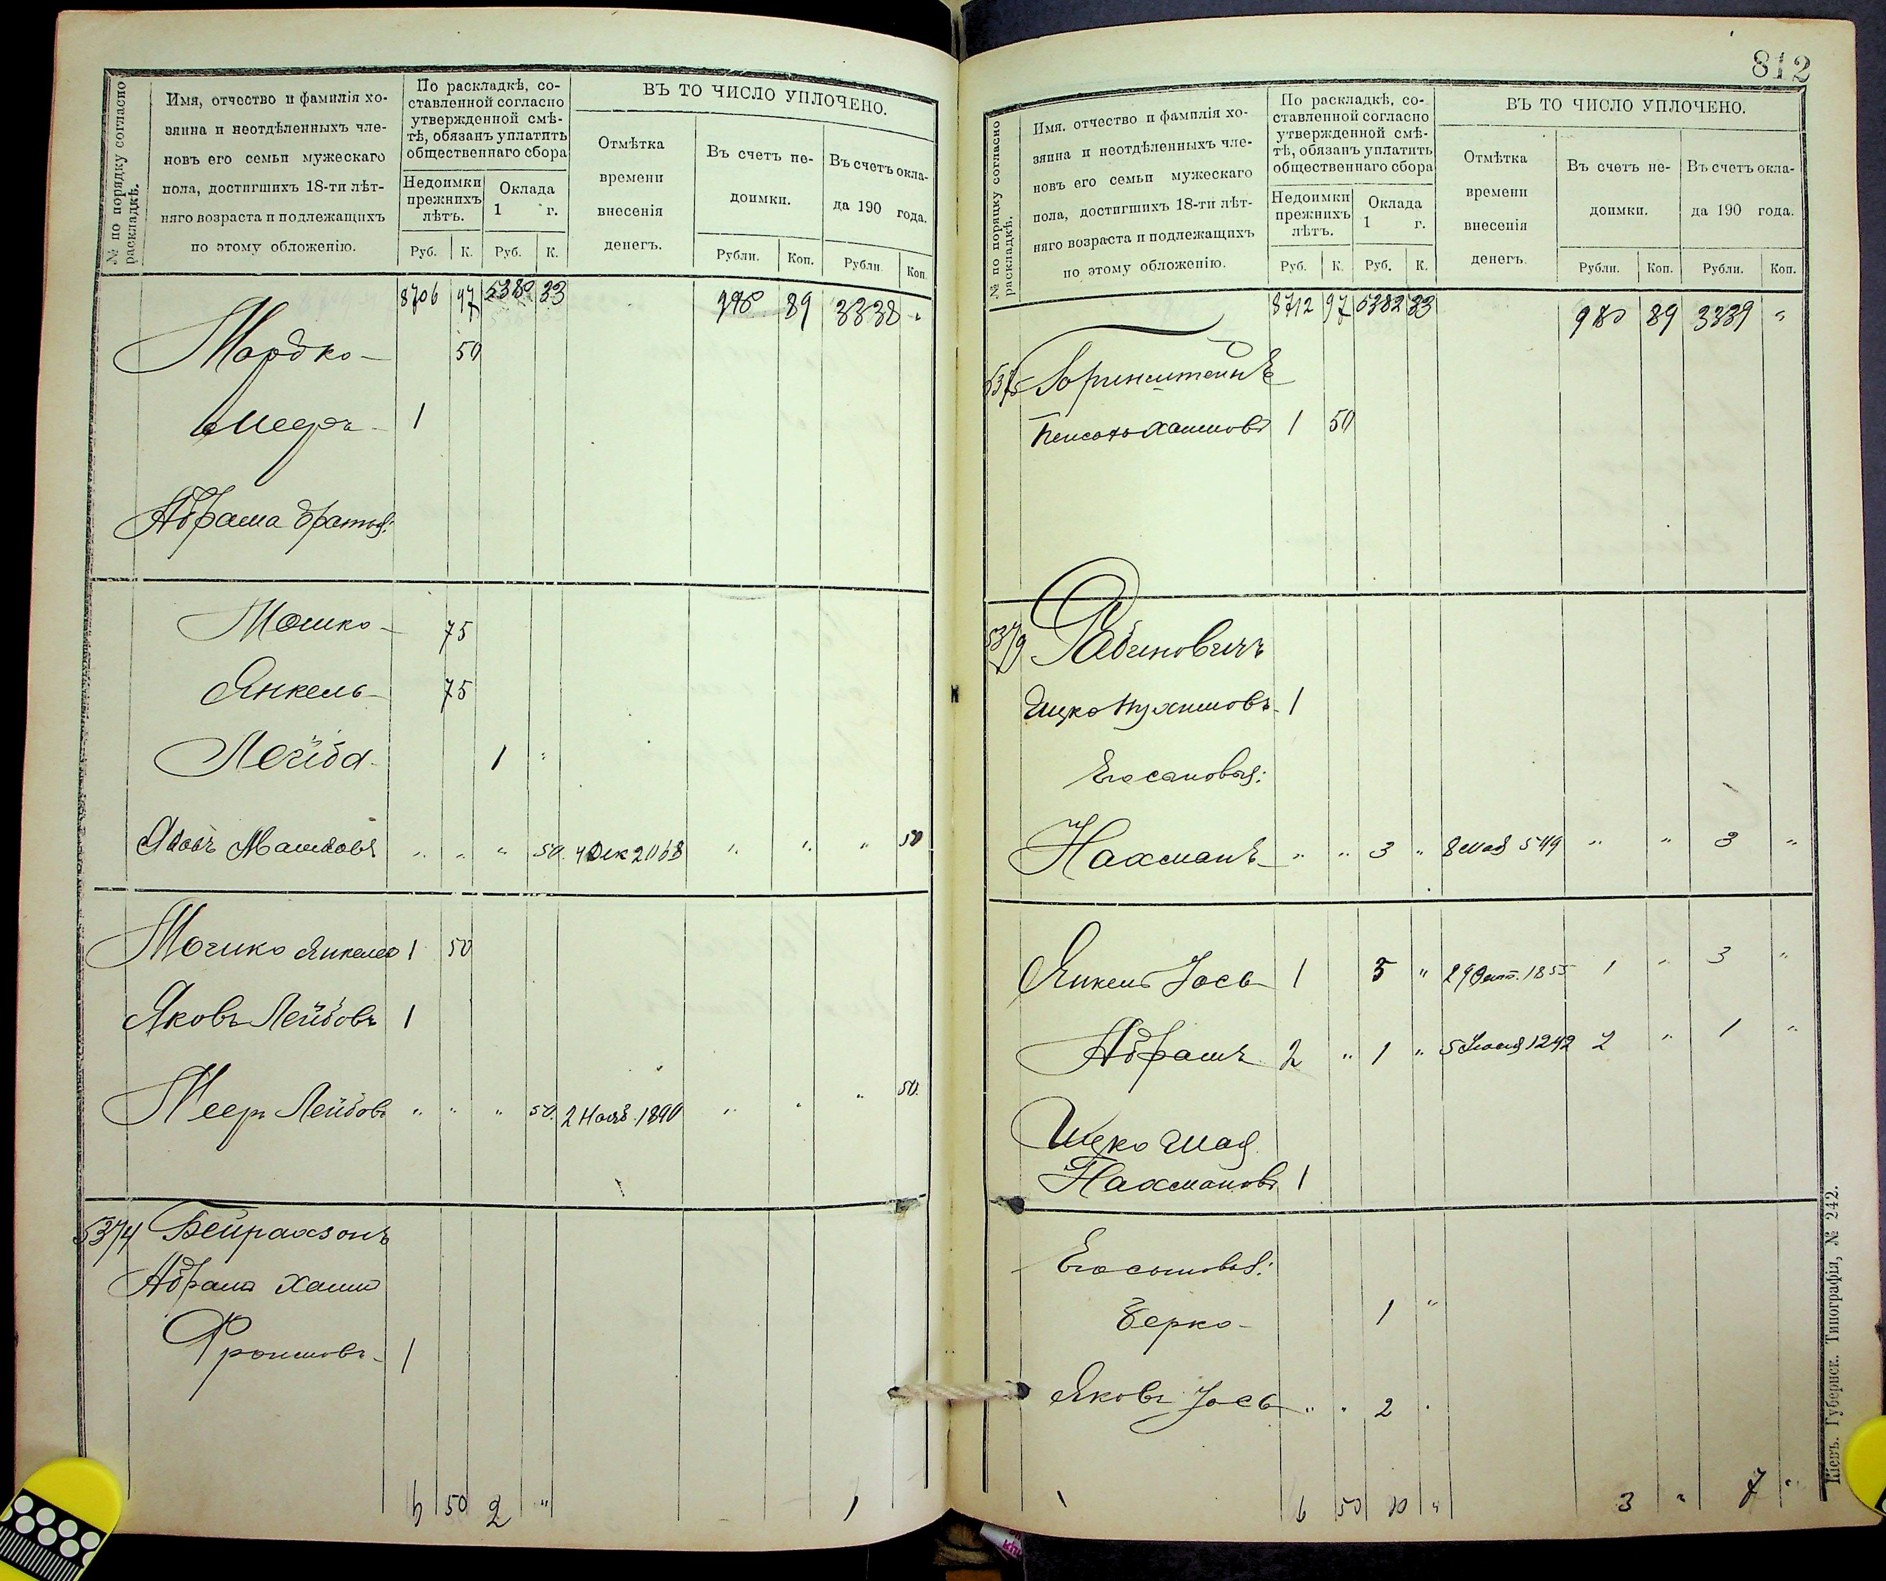 № по порядку согласно раскладкѣ.
Имя, отчество и фамилія хо-
зяина и неотдѣленныхъ чле-
новъ его семьи мужескаго
пола, достигшихъ 18-ти лѣт-
няго возраста и подлежащихъ
по этому обложенію.
По раскладкѣ, со-
ставленной согласно
утвержденной смѣ-
тѣ, обязанъ уплатить
общественнаго сбора
Недоимки
прежнихъ
лѣтъ.
Оклада
1 г.
Руб. К. Руб. К.
ВЪ ТО ЧИСЛО УПЛОЧЕНО.
Отмѣтка
времени
внесенія
денегъ.
Въ счетъ не-
доимки.
Въ счетъ окла-
да 190 года.
Рубли. Коп. Рубли Коп.
8706 97 5380 33 89 3338 "
Мордко 50
Меер 1
Абрама братья:
Мошко 75
Янкель 75
Лейба 1 "
" " " 50 4 Дек 2068 " " " 50
Мошко 1 50
Яковъ Лейбовъ 1
Меер Лейбовъ " " " 50. 2 Нояб. 1890 " " " 50.
5374 Бейрахзонъ
Абрама Хаим
Фроимовъ 1
50 2 " 1
812
№ по порядку согласно раскладкѣ.
Имя, отчество и фамилія хо-
зяина и неотдѣленныхъ чле-
новъ его семьи мужескаго
пола, достигшихъ 18-ти лѣт-
няго возраста и подлежащихъ
по этому обложенію.
По раскладкѣ, со-
ставленной согласно
утвержденной смѣ-
тѣ, обязанъ уплатить
общественнаго сбора
Недоимки
прежнихъ
лѣтъ.
Оклада
1 г.
Руб. К. Руб. К.
ВЪ ТО ЧИСЛО УПЛОЧЕНО.
Отмѣтка
времени
внесенія
денегъ.
Въ счетъ не-
доимки.
Въ счетъ окла-
да 190 года.
Рубли. Коп. Рубли. Коп.
8712 97 5382 33 980 89 3339 "
Хаимовъ 1 50
5379 Рабиновичъ
Ицко 1
Его сыновья:
Нахманъ " " 3 " 8 Мая 549 " " 3 "
Янкель Йось 1 3 " 29 1855 1 " 3 "
Абрамъ 2 " 1 " 1242 2 " 1 "
Ицко Шая
Нахмановъ 1
Его сыновья:
Берко 1 "
Яковъ Йось " " 2
6 50 10 " 3 " 7 "
Кіевъ. Губернск. Типографія, № 242.